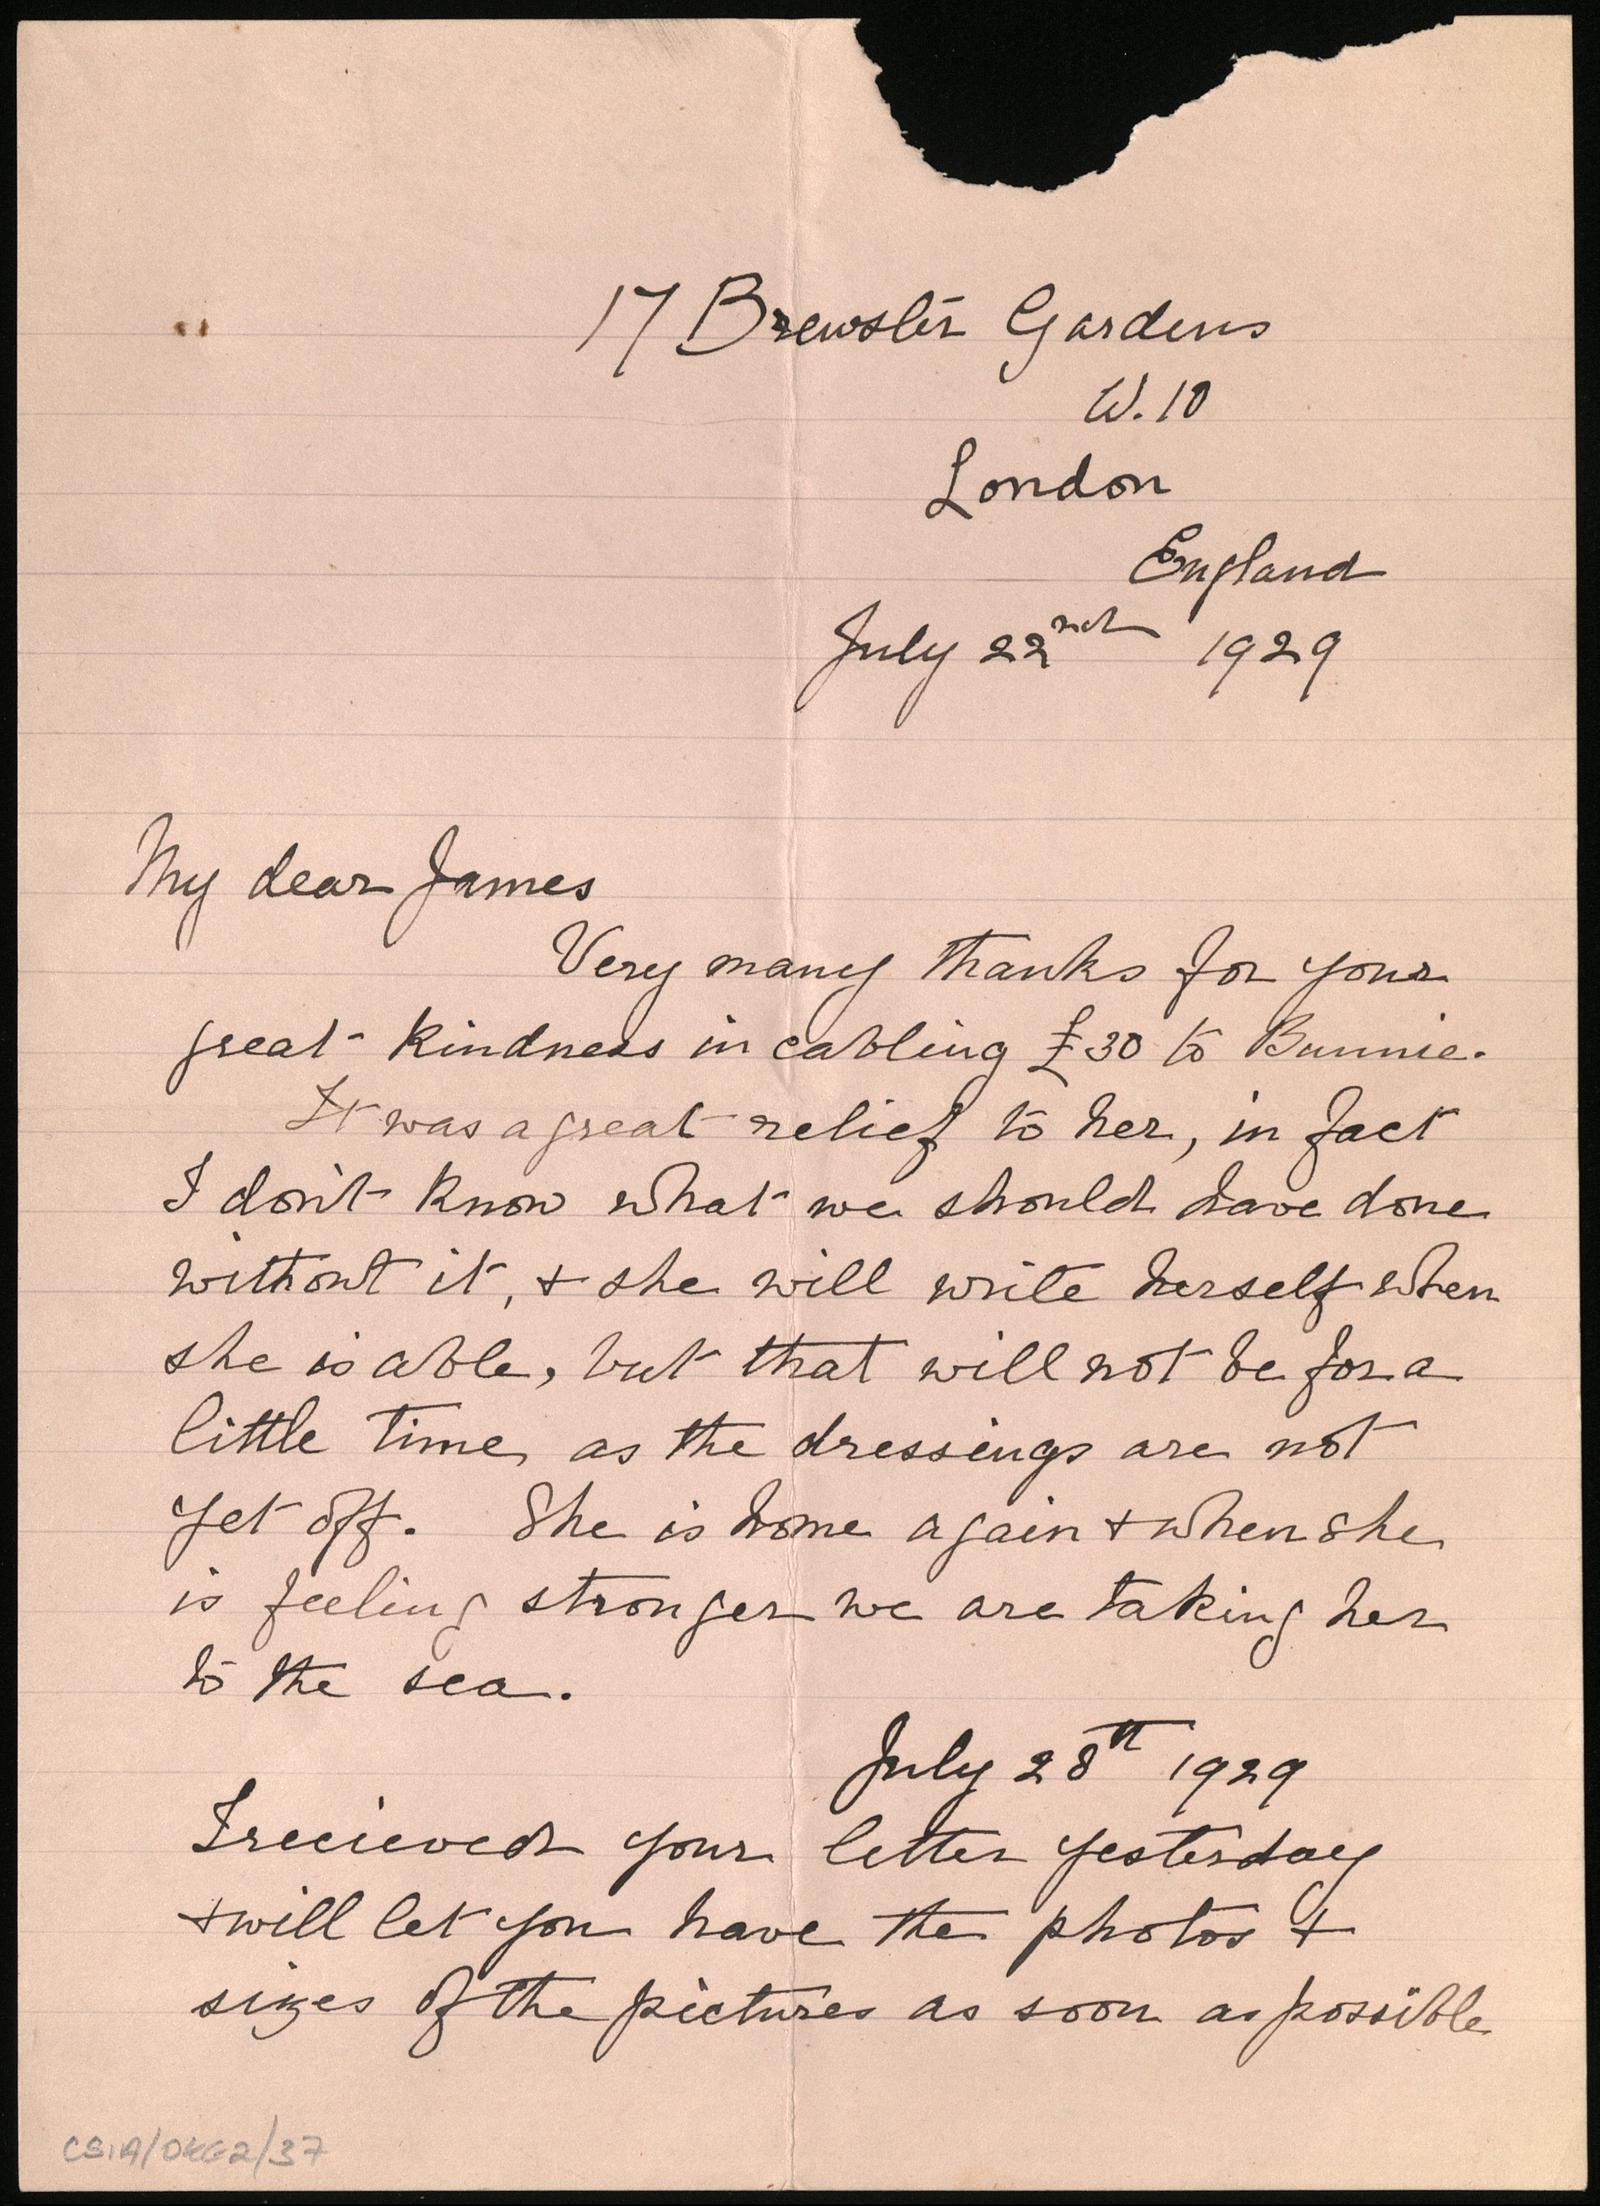 17 Brewster Gardens
W. 10
London
England
July 22nd 1929
My dear James
Very many thanks for your
great kindness in cabling £30 to Bunnie.
It was a great relief to her, in fact
I don't know what we should have done
without it, & she will write herself when
she is able, but that will not be for a
little time as the dressings are not
yet off. She is home again & when she
is feeling stronger we are taking her
to the sea.
July 28th 1929
I recieved your letter yesterday
& will let you have the photos &
sizes of the pictures as soon as possible
CSIA/OKG2/37